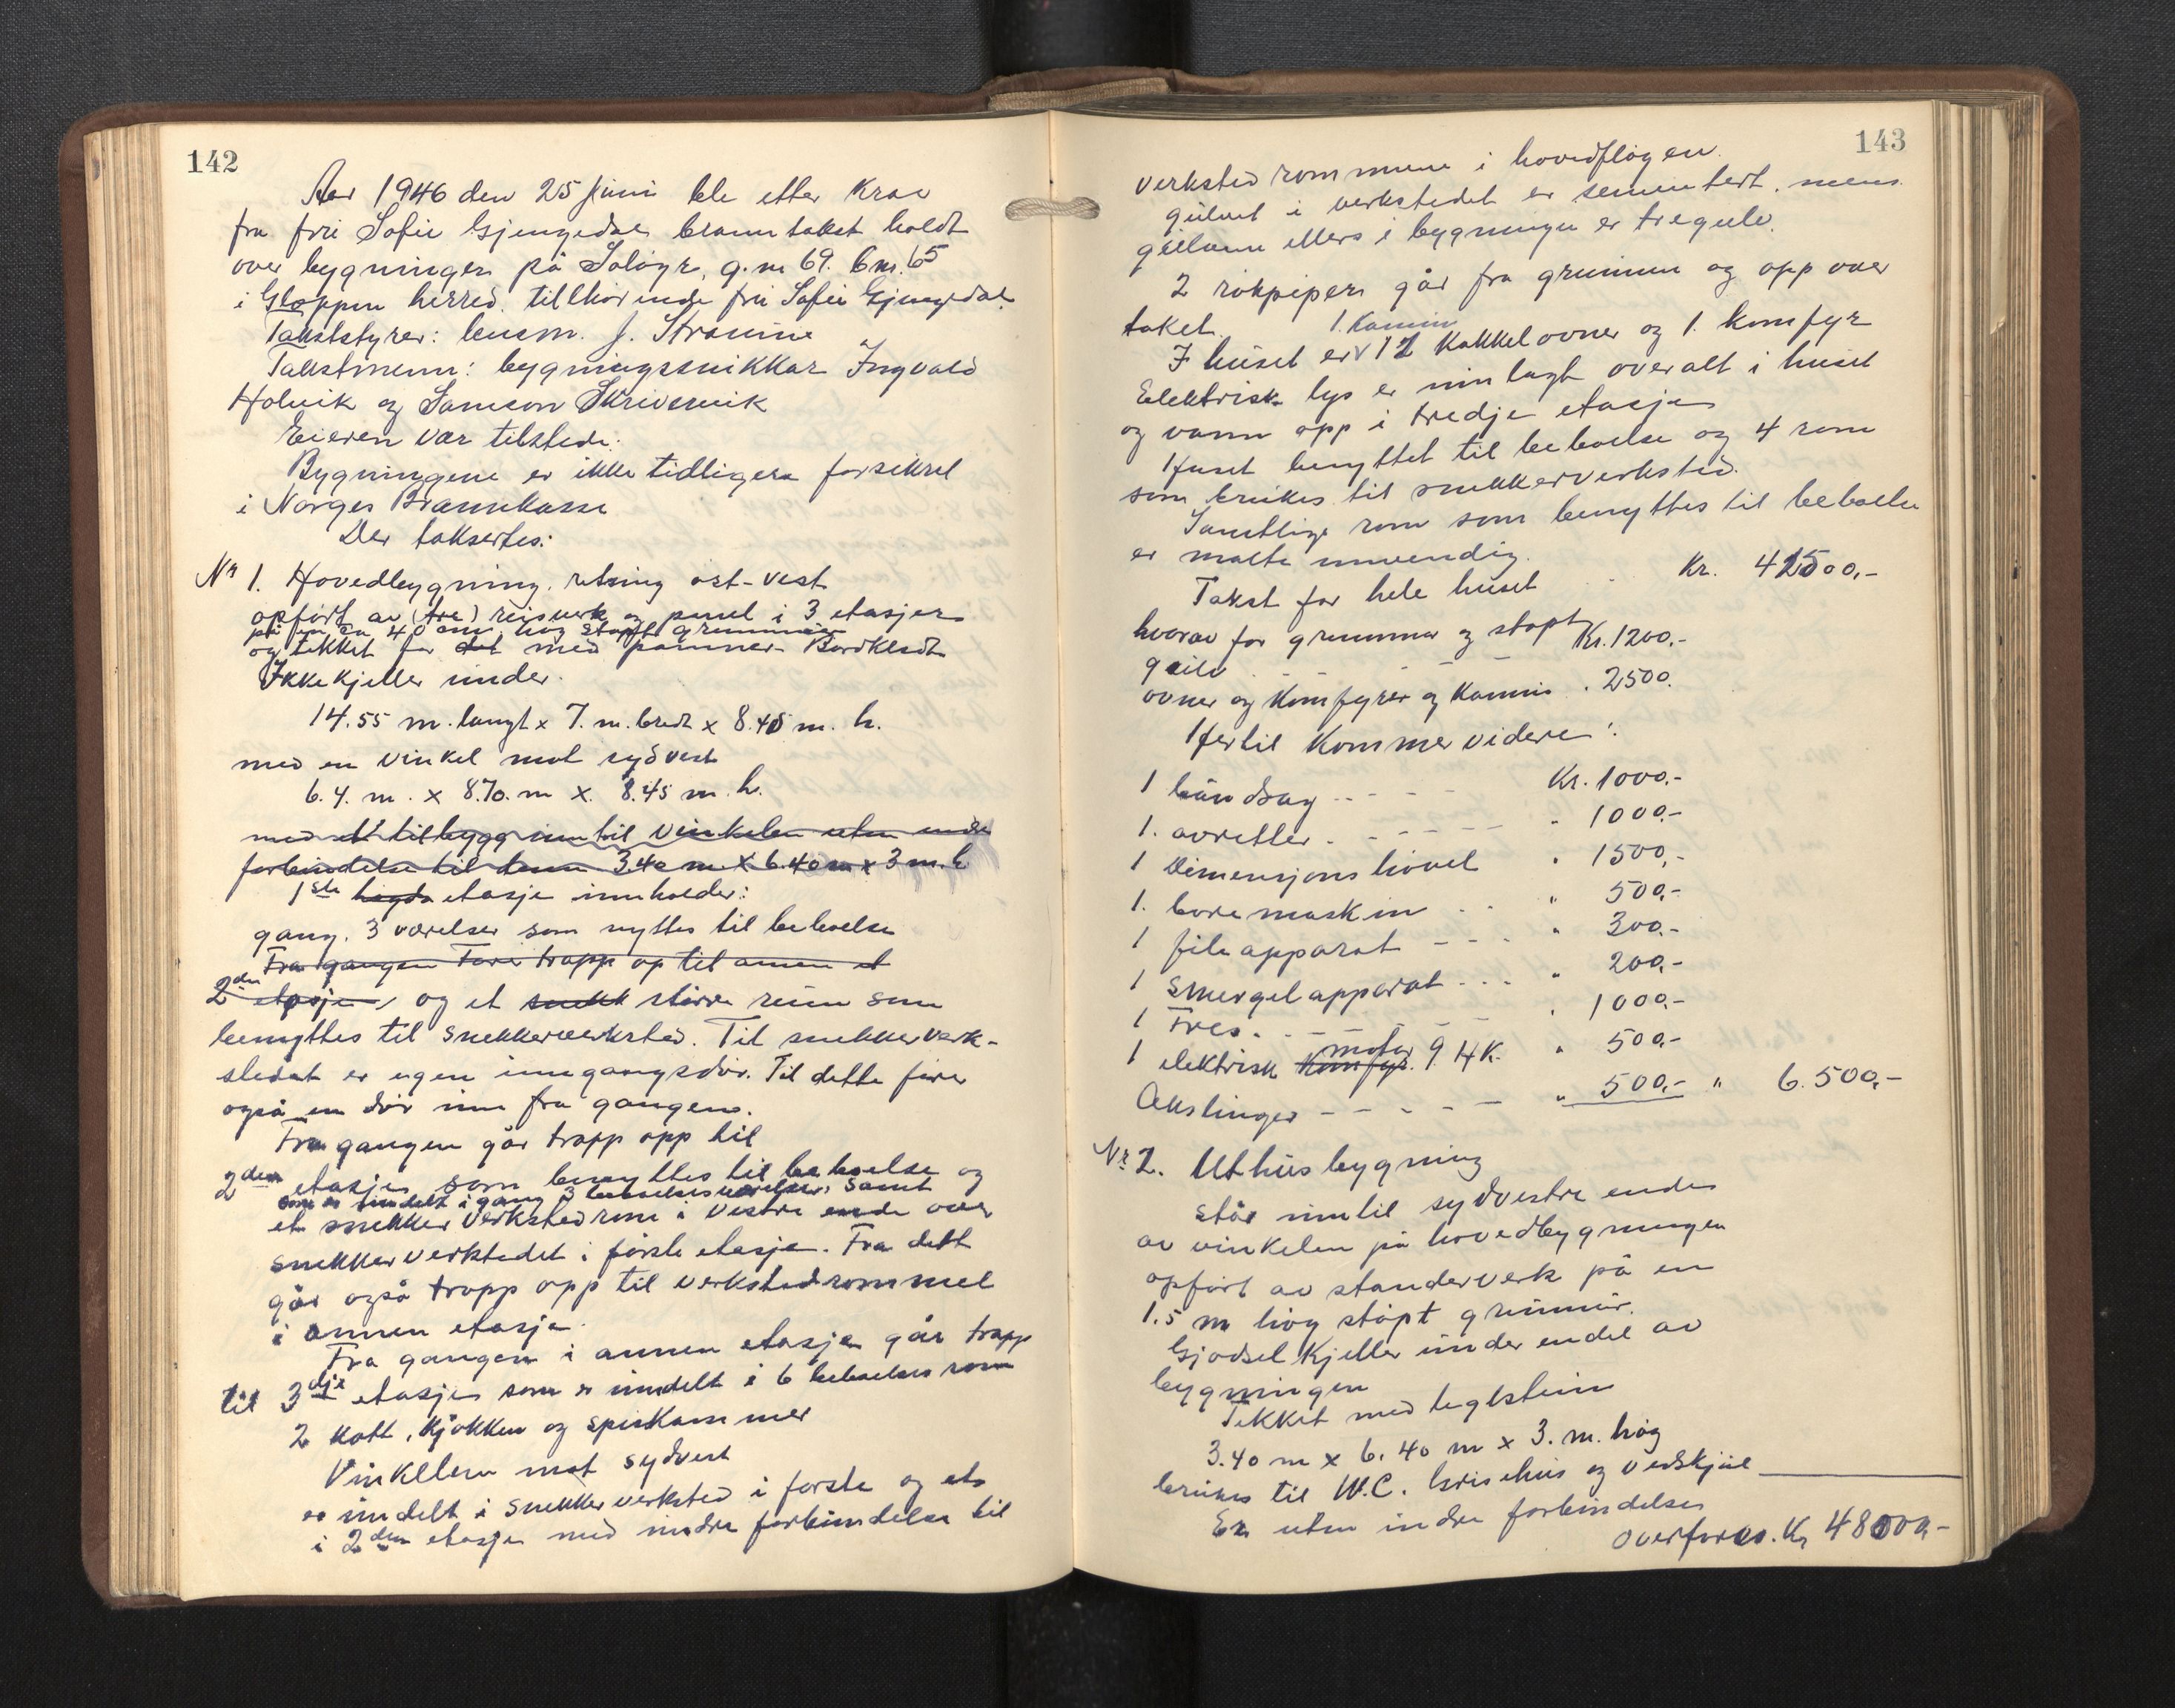 142
Aar 1946 den 25 juni ble etter krav
fra fru Sofie Gjengedal branntakst holdt
over bygninger på Soløyr, g.nr 69. b.nr. 65
i Gloppen herred tillhørende fru Sofie Gjengedal.
Takststyrer: lensm. J. Straume
Takstmenn: bygningssnikkar Ingvald
Holvik og Samson Skrivervik
Eieren var tilstede.
Bygningene er ikke tidligere forsikret
i Norges Brannkasse
Der taksertes:
Nr 1. Hovedbygning. retning øst-vest
opført av (tre) reisverk og panel i 3 etasjer
på en ca 40 cm høg støpt grunnmur
og tekket for det med panner Bordkledt
Ikke kjeller under.
14.55 m. langt x 7. m. bredt x 8.45 m. h.
med en vinkel mot sydvest
6.4. m. x 8.70. m x. 8.45 m. h.
med et tilbygg inntil vinkelen uten indre
forbindelse til denne 3.40 m x 6.40 m x 3 m. h
1ste høgda etasje innholder:
gang. 3 værelser som nyttes til beboelse
Fra gangen fører trapp op til annen et
2den etasje, og et snekk større rum som
benyttes til snekkerverksted. Til snekkerverk-
stedet er egen inngangsdør. Til dette fører
også en dør inn fra gangen.
Fra gangen går trapp opp til
2den etasje som benyttes til beboelse og
som er inndelt i gang 3 beboelsesværelser, samt
et snekkerverkstedrom i vestre ende over
snekkerverkstedet i første etasje. Fra dett
går også trapp opp til verkstedrommet
i annen etasje.
Fra gangen i annen etasje går trapp
til 3dje etasje som er inndelt i 6 beboelsesrom
2 kott, kjøkken og spiskammer
Vinkelen mot sydvest
er inndelt i snekkerverksted i første og ets
i 2den etasje med indre forbindelse til
143
verkstedrommene i hovedfløyen.
gulvet i verkstedet er sementert. mens
gulvene ellers i bygningen er tregulv.
2 røkpiper går fra grunnen og opp over
taket.
1. Kamin
I huset er v 12 kakkelovner og 1. komfyr
Elektrisk lys er innlagt overalt i huset
og vann opp i tredje etasje
Huset benyttet til beboelse og 4 rom
som brukes til snekkerverksted.
Samtlige rom som benyttes til beboelse
er malte innvendig.
Takst for hele huset . Kr. 41500,-
hvorav for grunnmur og støpt
gulv Kr. 1200.-
ovner og komfyrer og kamin . 2500.
Hertil kommer videre:
1 båndsag - - - - Kr. 1000.-
1. avretter. - - - - - " 1000.-
1 dimensjonshøvel " 1500,-
1. boremaskin . . " 500,-
1 fileapparat - - - . " 300.-
1 smergelapparat . . . " 200,-
1 Fres. . - - - - . 1000.-
1 elektrisk komfyr. motor 9 HK. " 500.-
Akslinger - - - - - " 500,- " 6.500,-
Nr 2. Uthusbygning
står inntil sydvestre ende
av vinkelen på hovedbygningen
opført av standerverk på en
1.5 m høg støpt grunnmur.
Gjødselkjeller under endel av
bygningen
Tekket med teglstein
3.40 m x 6.40 m x 3. m. høg
brukes til W.C. Grisehus og vedskjul
Er uten indre forbindelse
overføres. Kr 48000,-